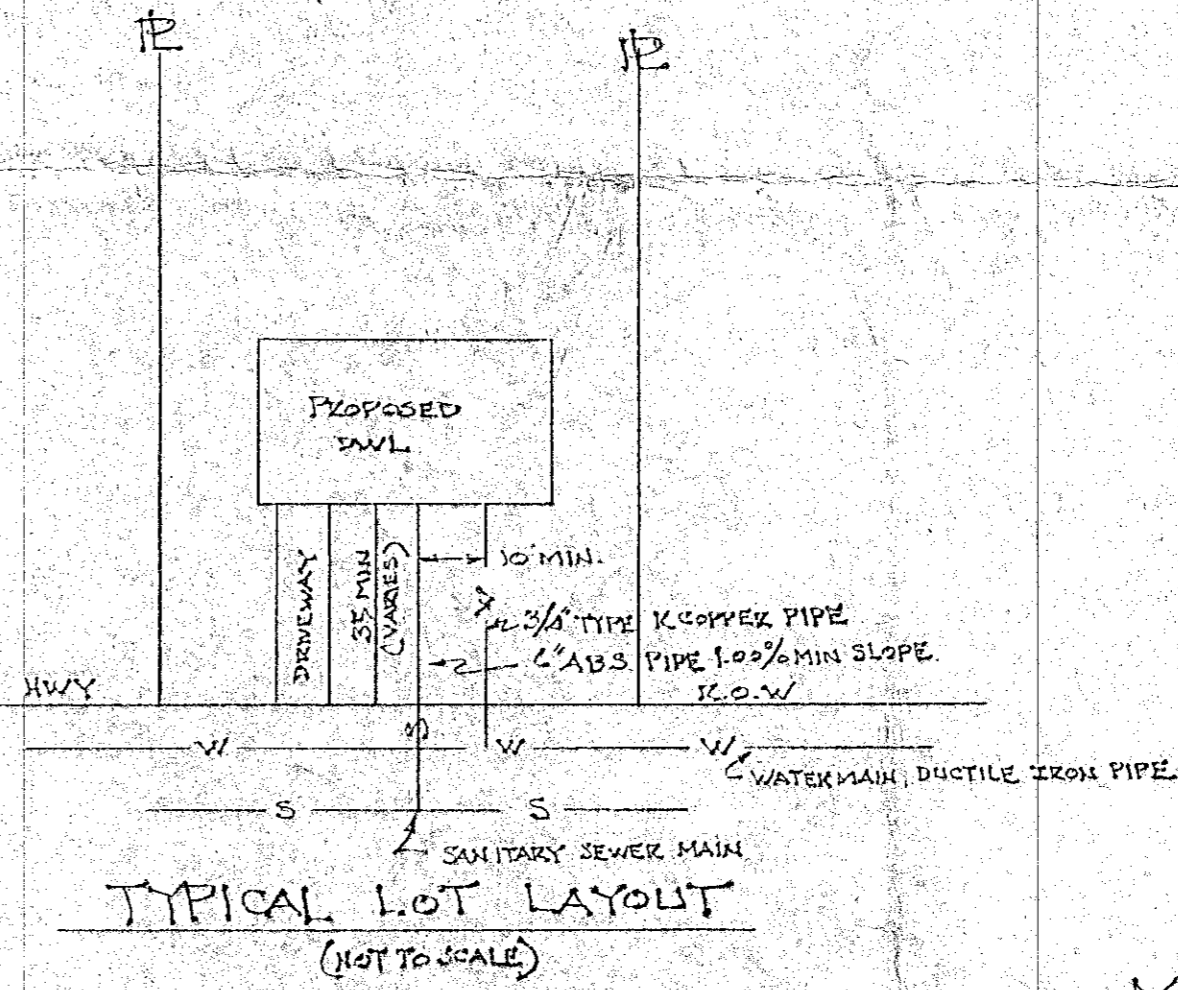 PL
PL
PROPOSED
DWL
DRIVEWAY
35 MIN
(VARIES)
10' MIN.
W
3/4" TYPE K COPPER PIPE
6" ABS PIPE 1.00% MIN SLOPE.
HWY
R.O.W
S
W
W
W
WATER MAIN, DUCTILE IRON PIPE
S
S
SANITARY SEWER MAIN
TYPICAL LOT LAYOUT
(NOT TO SCALE)